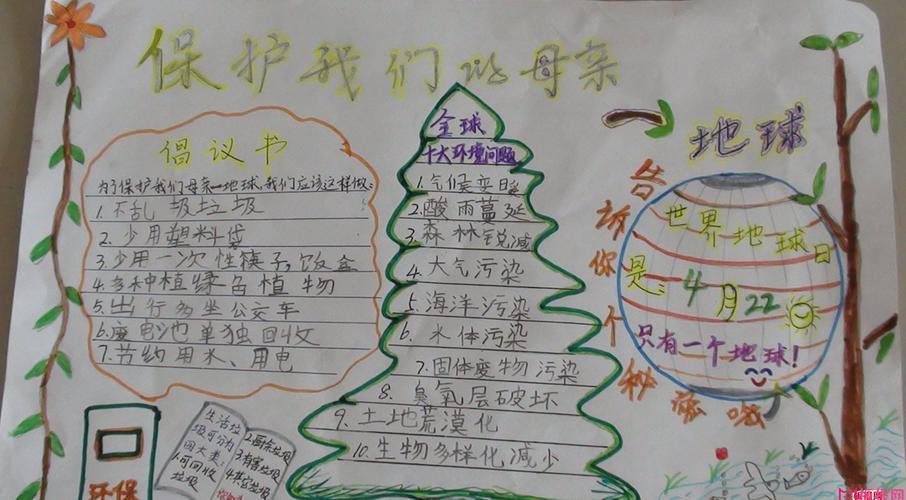 保护我们的母亲
地球
倡议书
为了保护我们母亲—地球,我们应该这样做:
1.不乱圾垃圾
2.少用塑料袋
3.少用一次性筷子,饭盒
4.多种植绿色植物
5.出行多坐公交车
6.废电池单独回收
7.节纳用水、用电
全球
十大环境问题
1.气候变暖
2.酸雨蔓延
3.森林锐减
4.大气污染
5.海洋污染
6.水体污染
7.固体废物污染
8.臭氧层破坏
9.土地荒漠化
10.生物多样化减少
告诉你个秘密
世界地球日
是:4月22
只有一个地球!
环保
生活垃
圾可分为
四大类:
1.可回收
垃圾
2.厨余垃圾
3.有害垃圾
4.其它垃圾